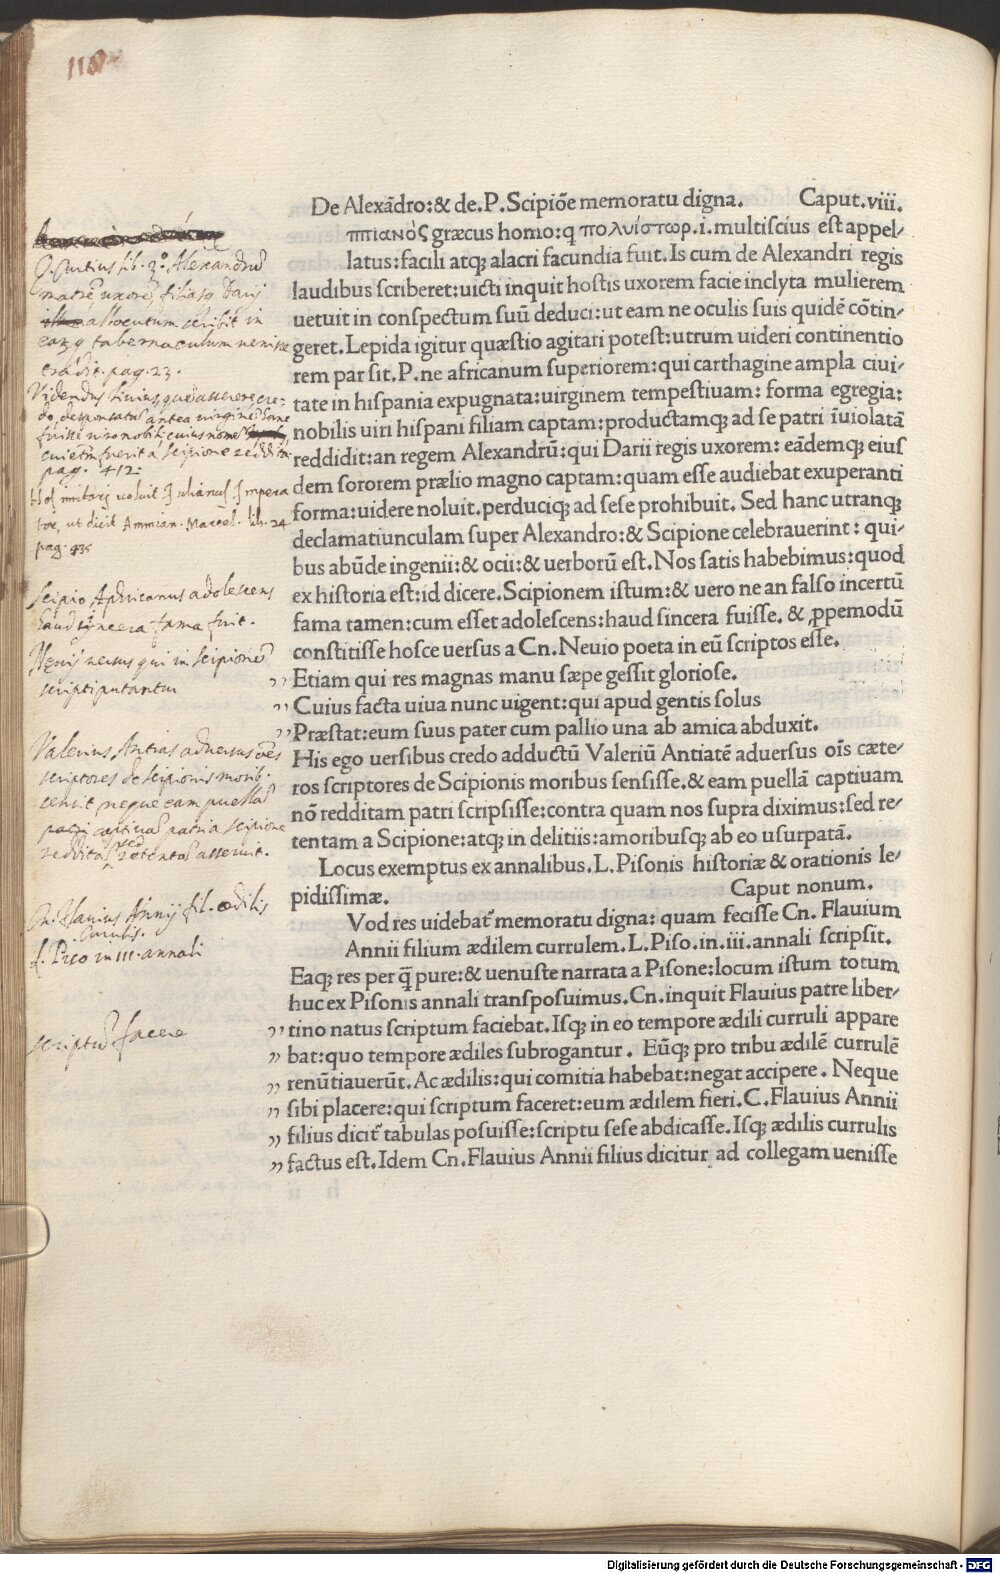 118
De Alexādro:& de.P.Scipiōe memoratu digna. Caput.viii.
ππιανὸς græcus homo:q πολυίστωρ.i.multiscius est appel-
latus:facili atq; alacri facundia fuit.Is cum de Alexandri regis
laudibus scriberet:uicti inquit hostis uxorem facie inclyta mulierem
uetuit in conspectum suū deduci:ut eam ne oculis suis quidē cōtin-
geret.Lepida igitur quæstio agitari potest:utrum uideri continentio
rem par sit.P.ne africanum superiorem:qui carthagine ampla ciui-
tate in hispania expugnata:uirginem tempestiuam: forma egregia:
nobilis uiri hispani filiam captam:productamq; ad se patri īuiolatā
reddidit:an regem Alexandrū:qui Darii regis uxorem: eādemq; eius
dem sororem prælio magno captam:quam esse audiebat exuperanti
forma:uidere noluit.perduciq; ad sese prohibuit. Sed hanc utranq;
declamatiunculam super Alexandro:& Scipione celebrauerint: qui-
bus abūde ingenii:& ocii:& uerborū est.Nos satis habebimus:quod
ex historia est:id dicere.Scipionem istum:& uero ne an falso incertū
fama tamen:cum esset adolescens:haud sincera fuisse. & ꝓpemodū
constitisse hosce uersus a Cn.Neuio poeta in eū scriptos esse.
,, Etiam qui res magnas manu sæpe gessit gloriose.
,, Cuius facta uiua nunc uigent:qui apud gentis solus
,, Præstat:eum suus pater cum pallio una ab amica abduxit.
His ego uersibus credo adductū Valeriū Antiatē aduersus oīs cæte-
ros scriptores de Scipionis moribus sensisse.& eam puellā captiuam
nō redditam patri scripsisse:contra quam nos supra diximus:sed re-
tentam a Scipione:atq; in delitiis:amoribusq; ab eo usurpatā.
Locus exemptus ex annalibus.L.Pisonis historiæ & orationis le-
pidissimæ. Caput nonum.
Vod res uidebat᷑ memoratu digna: quam fecisse Cn. Flauium
Annii filium ædilem currulem.L.Piso.in.iii.annali scripsit.
Eaq; res per q̄ pure:& uenuste narrata a Pisone:locum istum totum
huc ex Pisonis annali transposuimus.Cn.inquit Flauius patre liber-
,, tino natus scriptum faciebat.Isq; in eo tempore ædili curruli appare
,, bat:quo tempore ædiles subrogantur. Eūq; pro tribu ædilē currulē
,, renūtiauerūt.Ac ædilis:qui comitia habebat:negat accipere. Neque
,, sibi placere:qui scriptum faceret:eum ædilem fieri.C.Flauius Annii
,, filius dicit᷑ tabulas posuisse:scriptu sese abdicasse.Isq; ædilis currulis
,, factus est.Idem Cn.Flauius Annii filius dicitur ad collegam uenisse
Q. Curtius lib. 3º. Alexandrū
matrē uxorē, filiasq Darij
allocutum scribit in
tabernaculum venisse
pag. 23.
Videndus Livius,
pag. 412.
imitari voluit Iulianus Impera
tor, ut dicit Ammian. Marcel. lib. 24
pag.
Scipio Aphricanus adolescens
haud syncera fama fuit.
Nevij versus qui in Scipionē
scripti putantur
Valerius Antias adversus oēs
scriptores de Scipionis morib.
neque eam puellā
captivā patri a Scipione
redditā sed retentā asserit.
Cn. Flavius Annij fil. ædilis
Curulis.
L. Piso in III. annali
scriptū facere
Digitalisierung gefördert durch die Deutsche Forschungsgemeinschaft - DFG